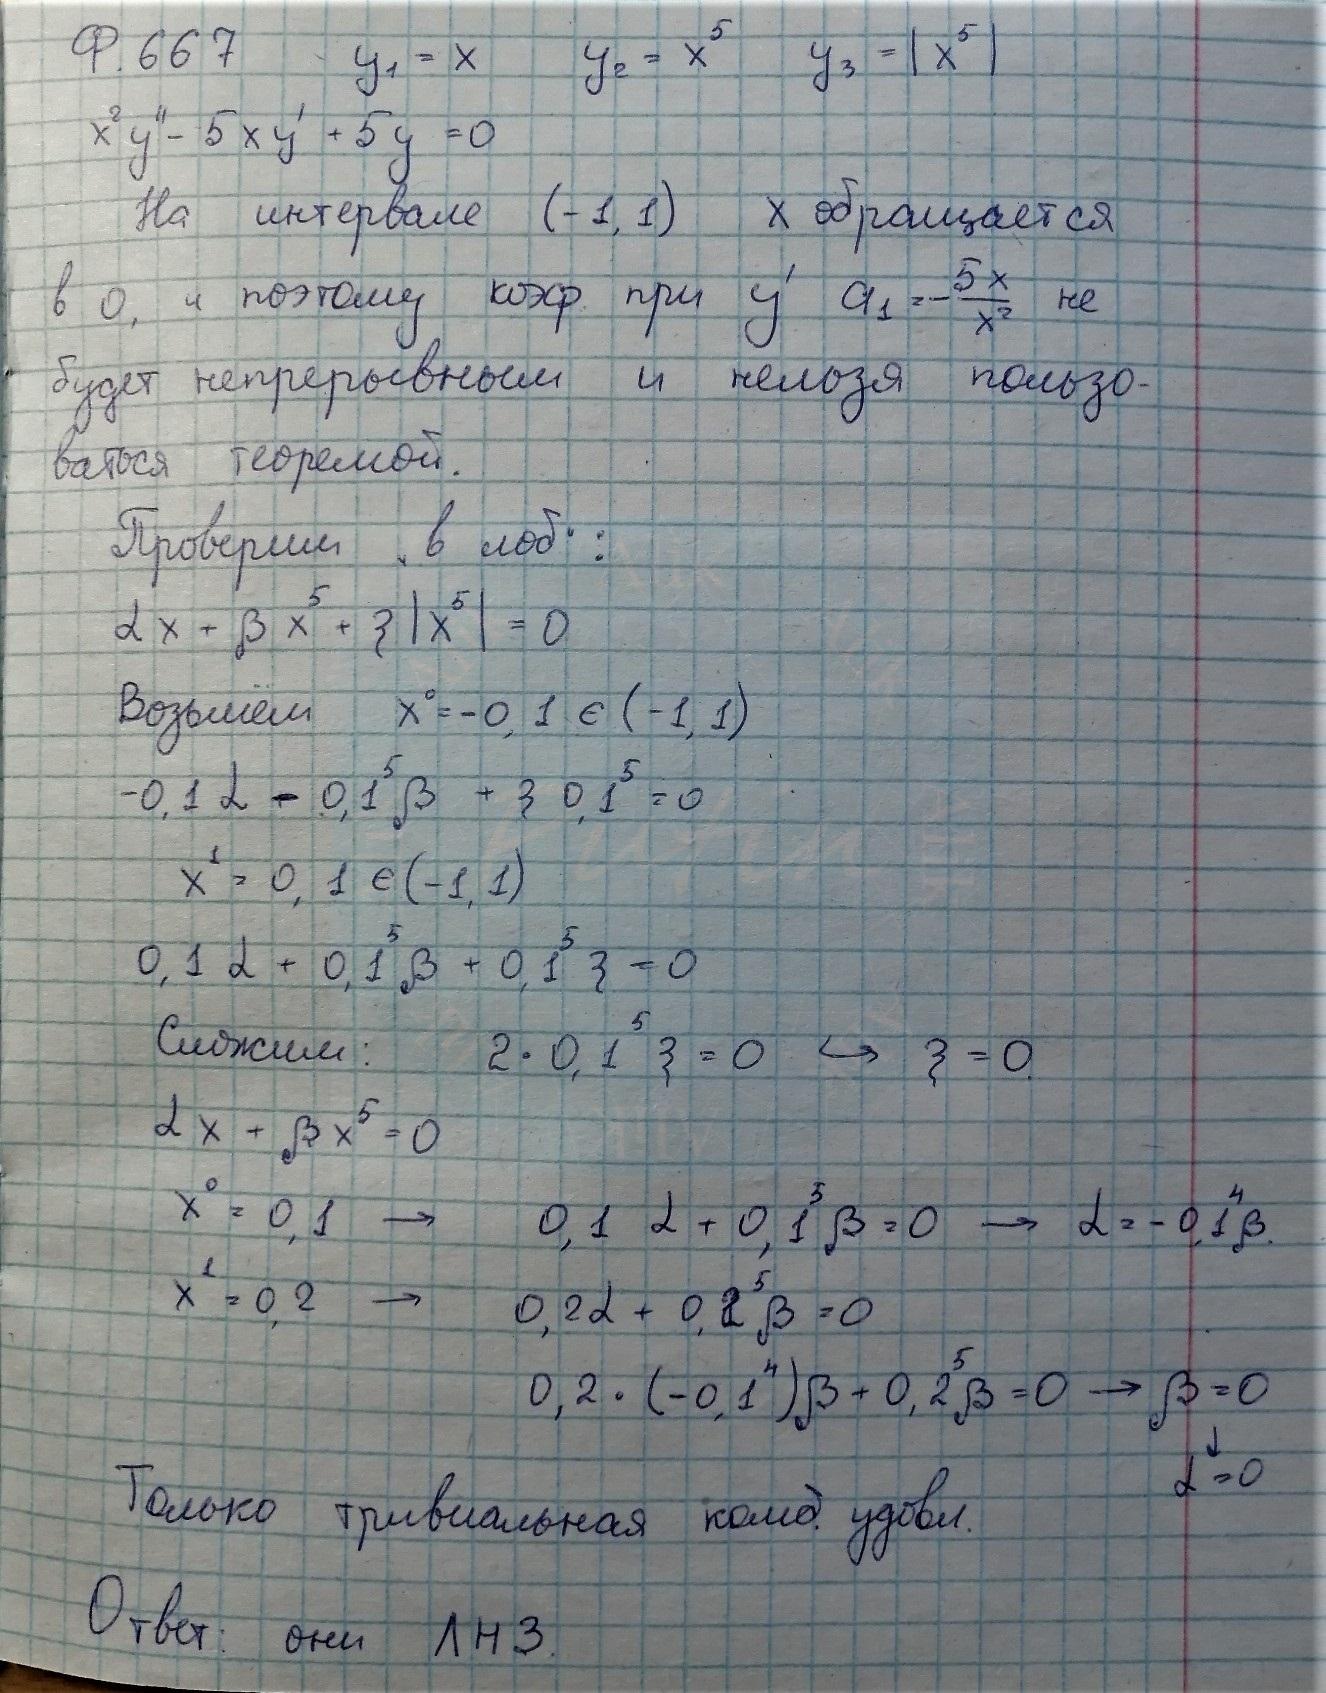 Ф. 667 y₁ = x y₂ = x⁵ y₃ = |x⁵|
x²y'' - 5xy' + 5y = 0
На интервале (-1, 1) x обращается
в 0, и поэтому коэф. при y' a₁ = -5x/x² не
будет непрерывным и нельзя пользо-
ваться теоремой.
Проверим "в лоб":
αx + βx⁵ + ξ|x⁵| = 0
Возьмём x⁰ = -0,1 ∈ (-1, 1)
-0,1α - 0,1⁵β + ξ 0,1⁵ = 0
x¹ = 0,1 ∈ (-1, 1)
0,1α + 0,1⁵β + 0,1⁵ξ = 0
Сложим: 2·0,1⁵ξ = 0 ↪ ξ = 0
αx + βx⁵ = 0
x⁰ = 0,1 → 0,1α + 0,1⁵β = 0 → α = -0,1⁴β.
x¹ = 0,2 → 0,2α + 0,2⁵β = 0
0,2·(-0,1⁴)β + 0,2⁵β = 0 → β = 0
↓
α = 0
Только тривиальная комб. удовл.
Ответ: они ЛНЗ.